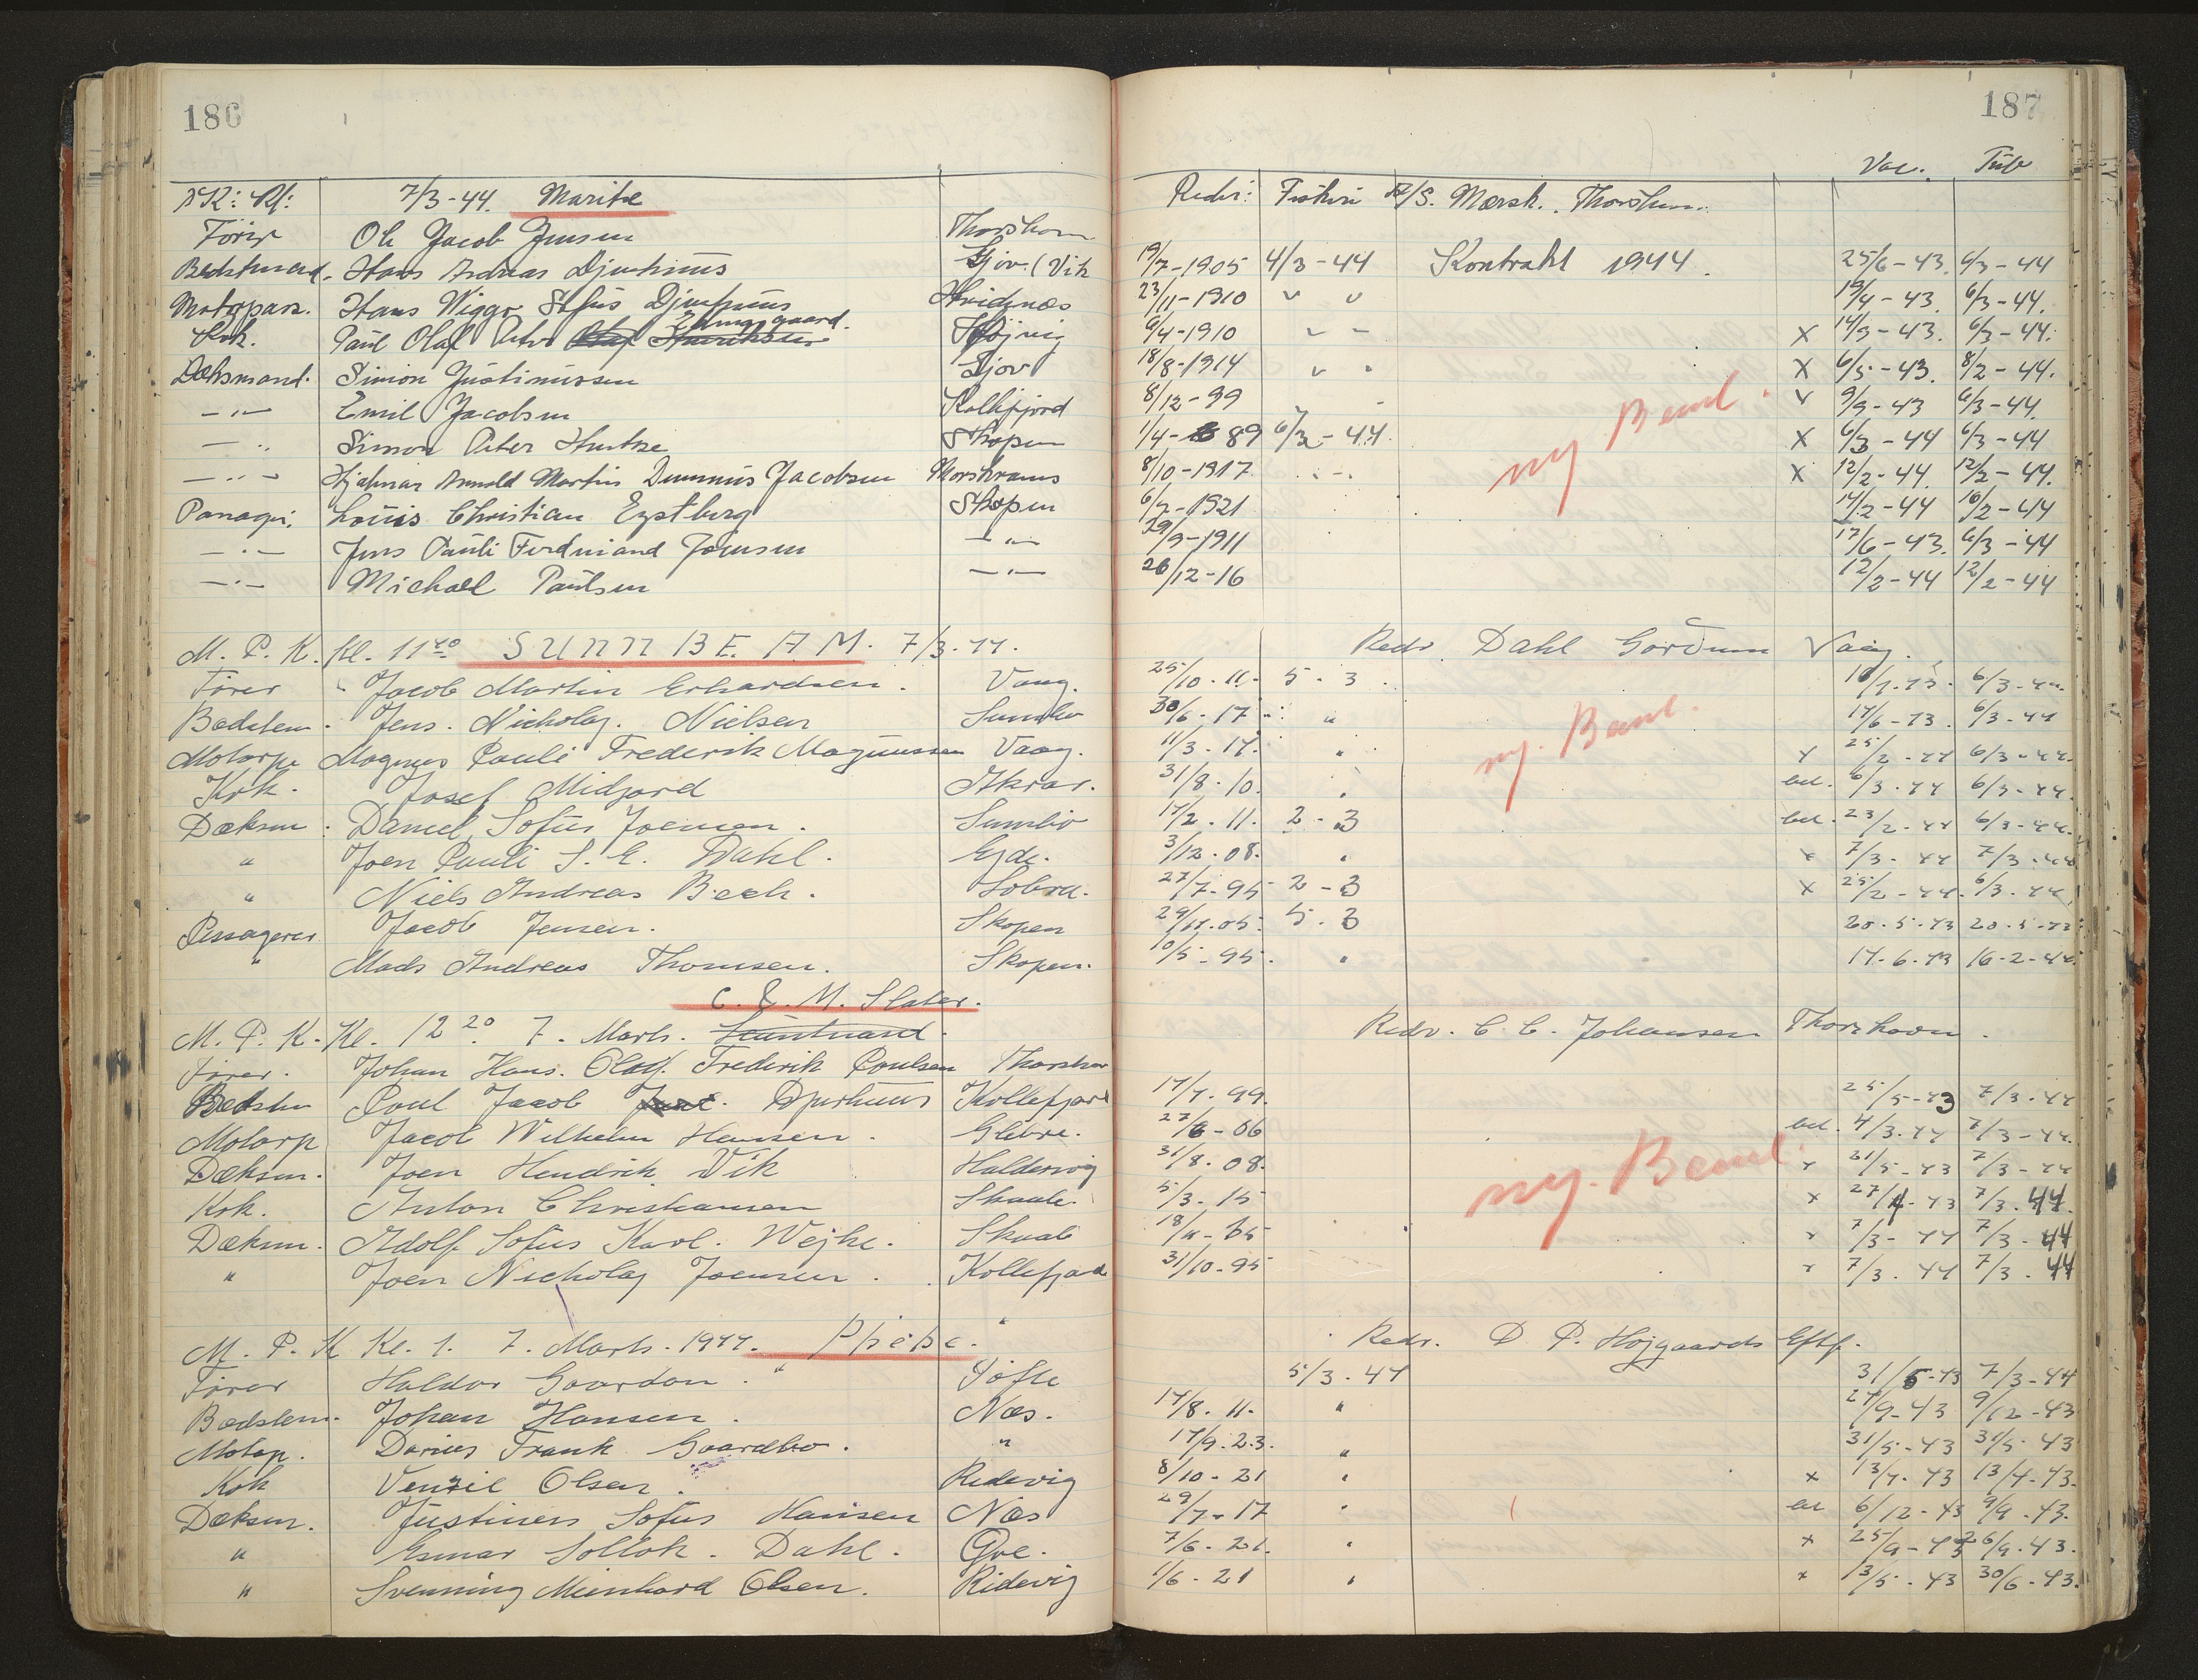 186
187
Vac. Tub
7/3-44. Marite Redr: Fiskeri A/S. Mærsk. Thorshavn.
Fører Ole Jacob Jensen Thorshavn
Bedstmand. Hans Andreas Djurhuus Gjov (Vik 19/7-1905 4/3-44 Kontrakt 1944. 25/6-43. 6/3-44
Motorpas. Hans Wiggo Sofus Djurhuus Hvidenæs 23/11-1910 19/4-43. 6/3-44.
Kok. Paul Olaf Peter 6/4-1910 X 14/9-43. 6/3-44.
Dæksmand. Simon Justinussen Gjov 18/8-1914 X 6/5-43. 8/2-44.
Emil Jacobsen Kolkfjord 8/12-99 9/9-43 6/3-44.
Simon Peter Skopen 1/4-89 6/3-44. X 6/3-44 6/3-44
Hjalmar Arnold Martin Jacobsen 8/10-1917 X 12/2-44. 12/2-44.
Louis Christian Eystberg Skopen 6/7-1921 14/2-44 16/2-44
Jens Pauli Ferdinand Joensen 29/9-1911 17/6-43. 6/3-44
Michael Paulsen 26/12-16 12/2-44 12/2-44
ny Beml.
M. P. K. Kl. 11 40 SUNNBEAM. 7/3.44. Redr. Dahl Vaag.
Fører Jacob Martin Erhardsen. Vaag. 25/10.11. 5.3. 6/3-44.
Bedstem. Jens. Nicholaj. Nielsen Sumbø 30/6.17 " 17/6-43. 6/3-44
Motorp Magnus Pauli Frederik Magnussen Vaag. 11/3.17. " x 25/2-44 6/3-44.
Kok. Josef Midjord Akrar. 31/8.10. bel. 6/3.44 6/3-44.
Dæksm. Daniel Sofus Joensen. Sumbø 17/2.11. 2-3 bel. 23/2.44 6/3-44.
" Joen Pauli S. E. Dahl. Ejde. 3/12.08. x 7/3-44 7/3-44
" Niels Andreas Bech. 27/7-95 2-3 x 25/2-44. 6/3.44
Passagerer Jacob Jensen. Skopen 29/11.05. 5.3 20.5.43 20.5.43
" Mads Andreas Thomsen. Skopen. 10/5-95. 17-6.43 16-2-44
ny. Beml.
C. E. M. Slater.
M. P. K. Kl. 12 20 7. Marts. Redr. C. C. Johansen Thorshavn.
Fører. Johan Hans. Olaf. Frederik Poulsen Thorshav
Bedstm Poul Jacob Djurhuus Kollefjord 17/7.99. 25/5-43 7/3.44
Motorp Jacob Wilhelm Hansen. Glibre. 27/6-06 bel. 4/3.44 7/3-44.
Dæksm. Joen Hendrik Vik Haldersvig 31/8.08. x 21/5-43 7/3-44
Kok. Anton Christiansen Skaale. 5/3.15 x 7/3.44.
Dæksm. Adolf Sofus Karl. Wejhe. Skaale x 7/3-44 7/3-44
" Joen Nicholaj Joensen. Kollefjord 31/10.95 x 7/3.44 7/3.44
ny. Beml.
M. P. K Kl. 1. 7. Marts. 1944. Redr. D. P. Højgaards Eftf.
Fører Haldor Gaardon. Tofte 5/3.44 31/5-43 7/3-44
Bedstem. Johan Hansen. Næs. 17/8.11. " 27/9-43 9/12-43
Motop. Darius Frank Gaardbo. " 17/9.23. " 31/5-43 31/5-43
Kok Venzil Olsen. Ridevig 8/10-21 x 13/4-43 13/4-43.
Dæksm. Justinus Sofus Hansen Næs 29/7-17 bel 6/12-43 9/9.43.
" Esmar Sollok. Dahl. Qve. 7/6-21. x 25/9-43 26/9.43.
" Svenning Meinhard Olsen. Ridevig 1/6-21 x 13/5-43 30/6-43.